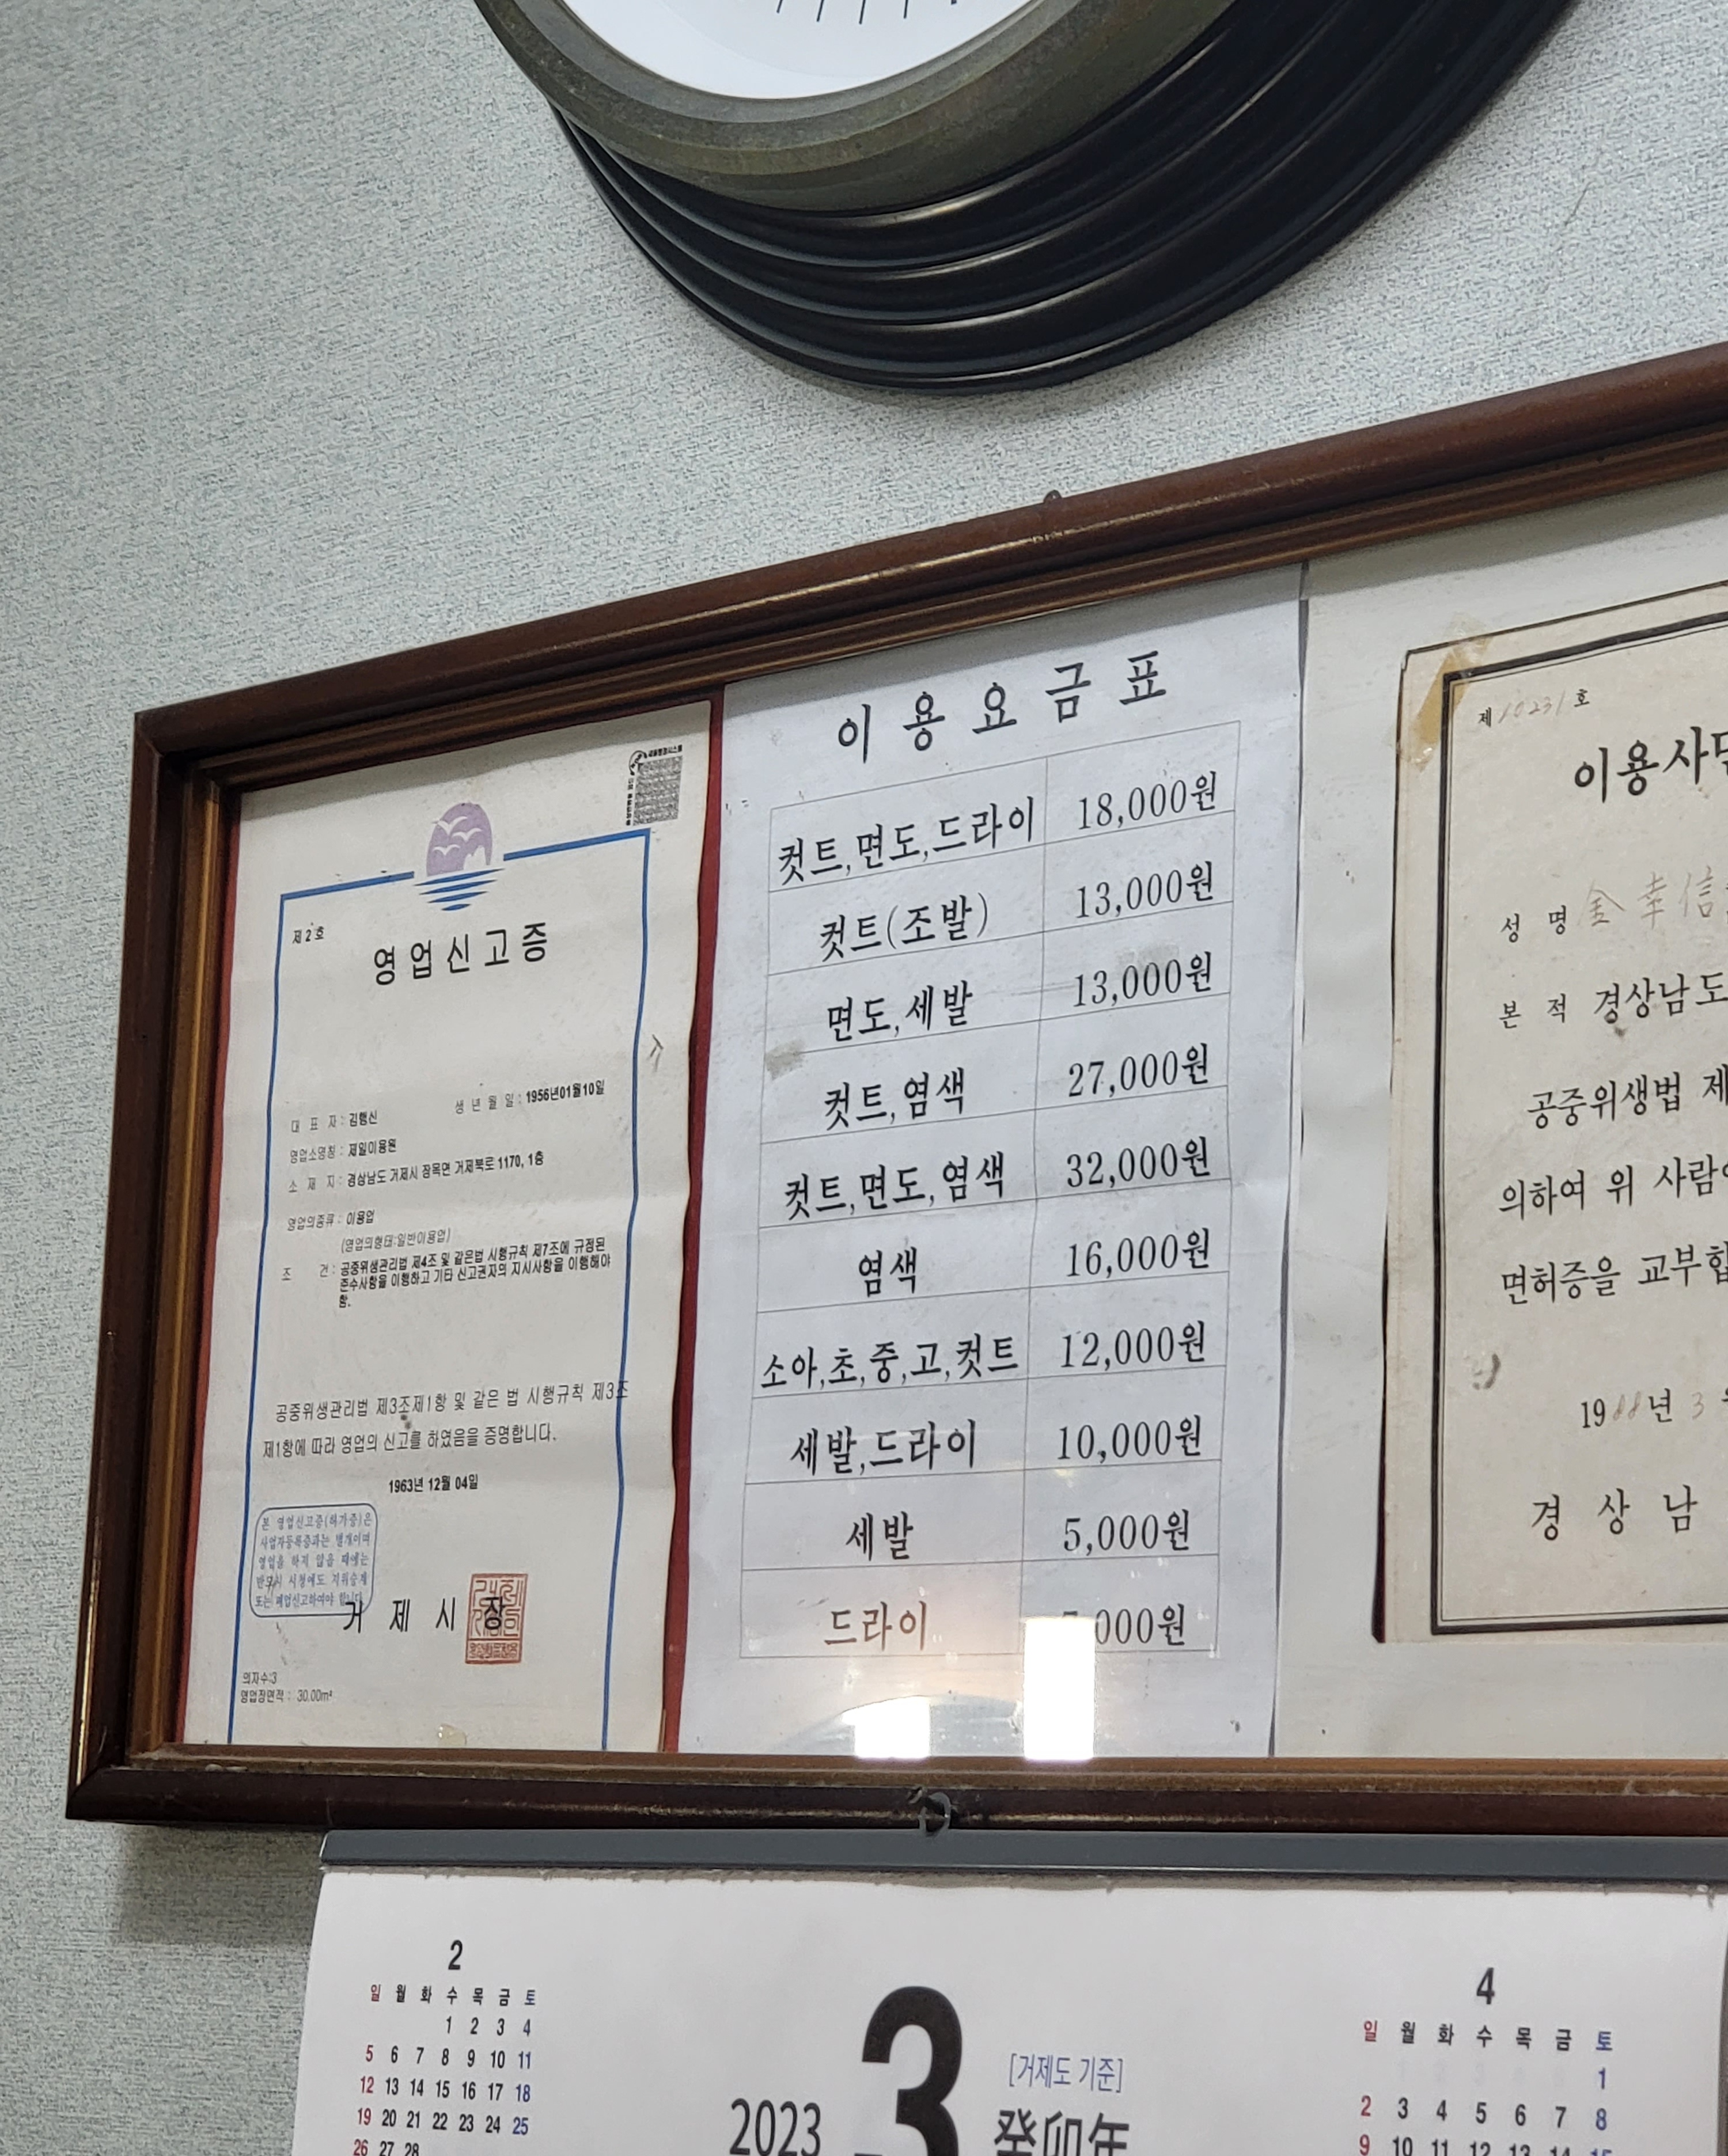 제2호
영업신고증
대 표 자 : 김행신
생 년 월 일 : 1956년01월10일
영업소명칭 : 제일이용원
소 재 지 : 경상남도 거제시 장목면 거제북로 1170, 1층
영업의종류 : 이용업
(영업의형태:일반이용업)
조 건 : 공중위생관리법 제4조 및 같은법 시행규칙 제7조에 규정된
준수사항을 이행하고 기타 신고권자의 지시사항을 이행해야
함.
공중위생관리법 제3조제1항 및 같은 법 시행규칙 제3조
제1항에 따라 영업의 신고를 하였음을 증명합니다.
1963년 12월 04일
본 영업신고증(허가증)은
사업자등록증과는 별개이며
영업을 하지 않을 때에는
반드시 시청에도 지위승계
또는 폐업신고하여야 합니다
거 제 시 장
의자수:3
영업장면적 : 30.00m²
이용요금표
컷트,면도,드라이 18,000원
컷트(조발) 13,000원
면도,세발 13,000원
컷트,염색 27,000원
컷트,면도,염색 32,000원
염색 16,000원
소아,초,중,고,컷트 12,000원
세발,드라이 10,000원
세발 5,000원
드라이 ,000원
제10231호
이용사
성 명 金幸信
본 적 경상남도
공중위생법 제
의하여 위 사람
면허증을 교부합
1988년 3
경 상 남
2
일 월 화 수 목 금 토
1 2 3 4
5 6 7 8 9 10 11
12 13 14 15 16 17 18
19 20 21 22 23 24 25
26 27 28
2023
3
[거제도 기준]
癸卯年
4
일 월 화 수 목 금 토
1
2 3 4 5 6 7 8
9 10 11 12 13 14 15